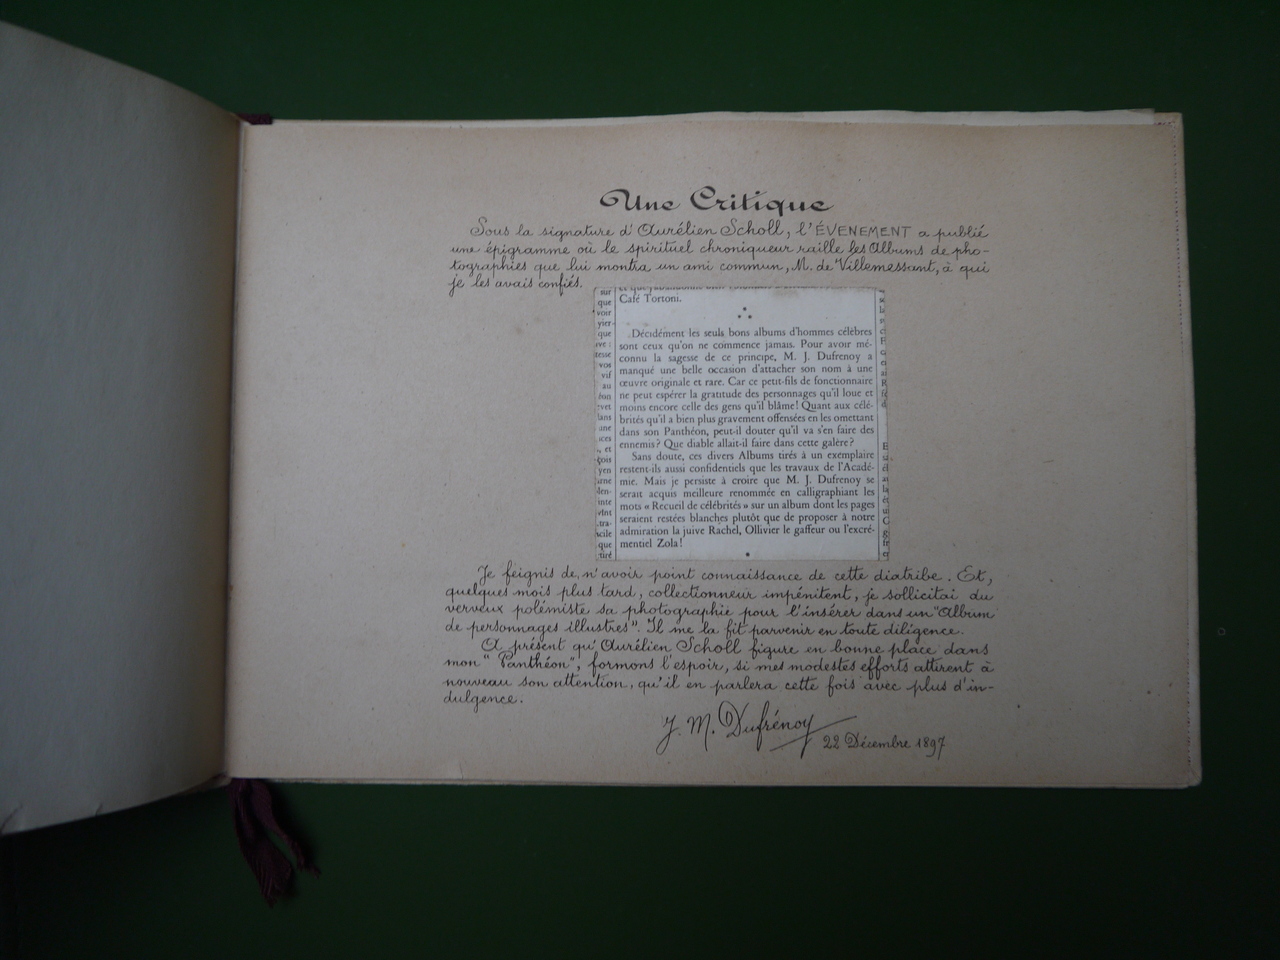 Une Critique
Sous la signature d'Aurélien Scholl, l'ÉVENEMENT a publié
une épigramme où le spirituel chroniqueur raille les Albums de pho-
tographies que lui montra un ami commun, M. de Villemessant, à qui
je les avais confiés.
Café Tortoni.
Décidément les seuls bons albums d'hommes célèbres
sont ceux qu'on ne commence jamais. Pour avoir mé-
connu la sagesse de ce principe, M. J. Dufrenoy a
manqué une belle occasion d'attacher son nom à une
œuvre originale et rare. Car ce petit-fils de fonctionnaire
ne peut espérer la gratitude des personnages qu'il loue et
moins encore celle des gens qu'il blâme! Quant aux célé-
brités qu'il a bien plus gravement offensées en les omettant
dans son Panthéon, peut-il douter qu'il va s'en faire des
ennemis? Que diable allait-il faire dans cette galère?
Sans doute, ces divers Albums tirés à un exemplaire
restent-ils aussi confidentiels que les travaux de l'Acadé-
mie. Mais je persiste à croire que M. J. Dufrenoy se
serait acquis meilleure renommée en calligraphiant les
mots « Recueil de célébrités » sur un album dont les pages
seraient restées blanches plutôt que de proposer à notre
admiration la juive Rachel, Ollivier le gaffeur ou l'excré-
mentiel Zola!
sur
que
voir
vier-
que
ive :
tesse
vos
vif
au
éon
vet
lans
une
ices
, et
çois
yen
urne
den-
inte
vint
tra-
acile
que
tiré
Je feignis de n'avoir point connaissance de cette diatribe. Et,
quelques mois plus tard, collectionneur impénitent, je sollicitai du
verveux polémiste sa photographie pour l'insérer dans un "Album
de personnages illustres". Il me la fit parvenir en toute diligence.
A présent qu'Aurélien Scholl figure en bonne place dans
mon "Panthéon", formons l'espoir, si mes modestes efforts attirent à
nouveau son attention, qu'il en parlera cette fois avec plus d'in-
dulgence.
J. M. Dufrénoy
22 Décembre 1897